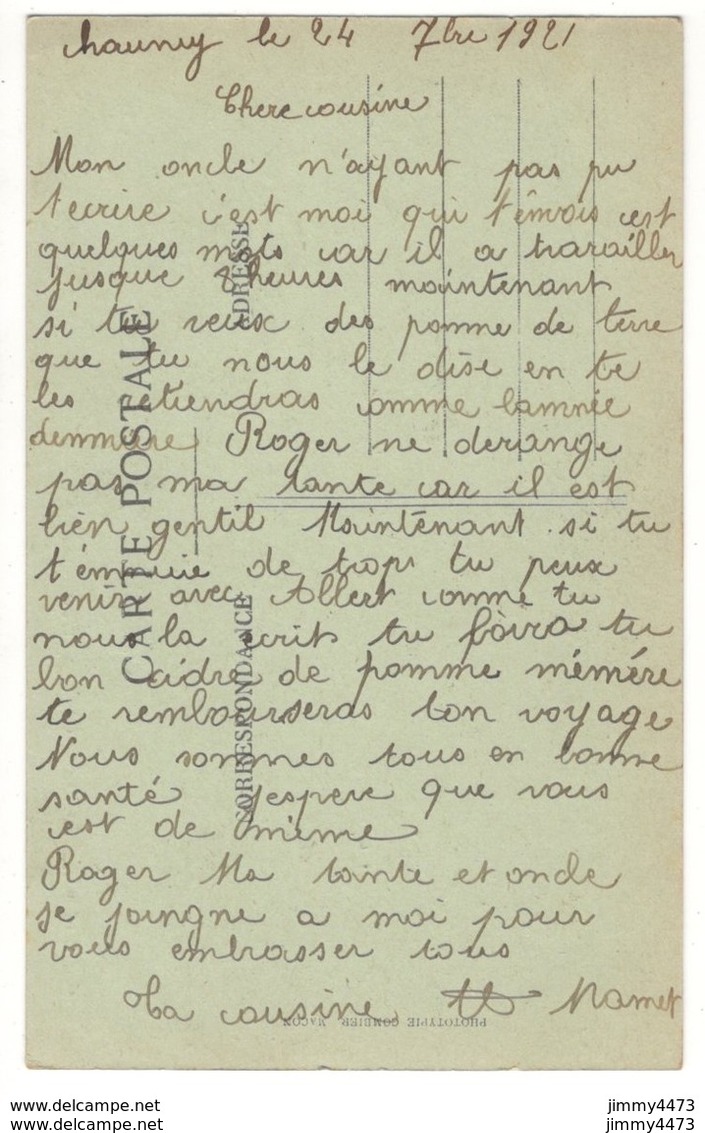 Chauny le 24 7bre 1921
Chere cousine
Mon oncle n'ayant pas pu
t'ecrire c'est moi qui t'envois cest
quelques mots car il a travailler
jusque 8 heures maintenant
si tu veux des pomme de terre
que tu nous le dise en te
les etiendras comme lannée
dernniere Roger ne derange
pas ma tante car il est
bien gentil Maintenant si tu
t'ennuie de trop tu peux
venir avec Albert comme tu
nous la ecrit tu boira tu
bon cidre de pomme mémére
te rembourseras ton voyage
Nous sommes tous en bonne
santé jespere que vous
est de même
Roger Ma tante et oncle
se joingne a moi pour
vous embrasser tous
Ta cousine Mamet
CARTE POSTALE
CORRESPONDANCE
ADRESSE
PHOTOTYPIE COMBIER MACON
jimmy4473
jimmy4473
jimmy4473
jimmy4473